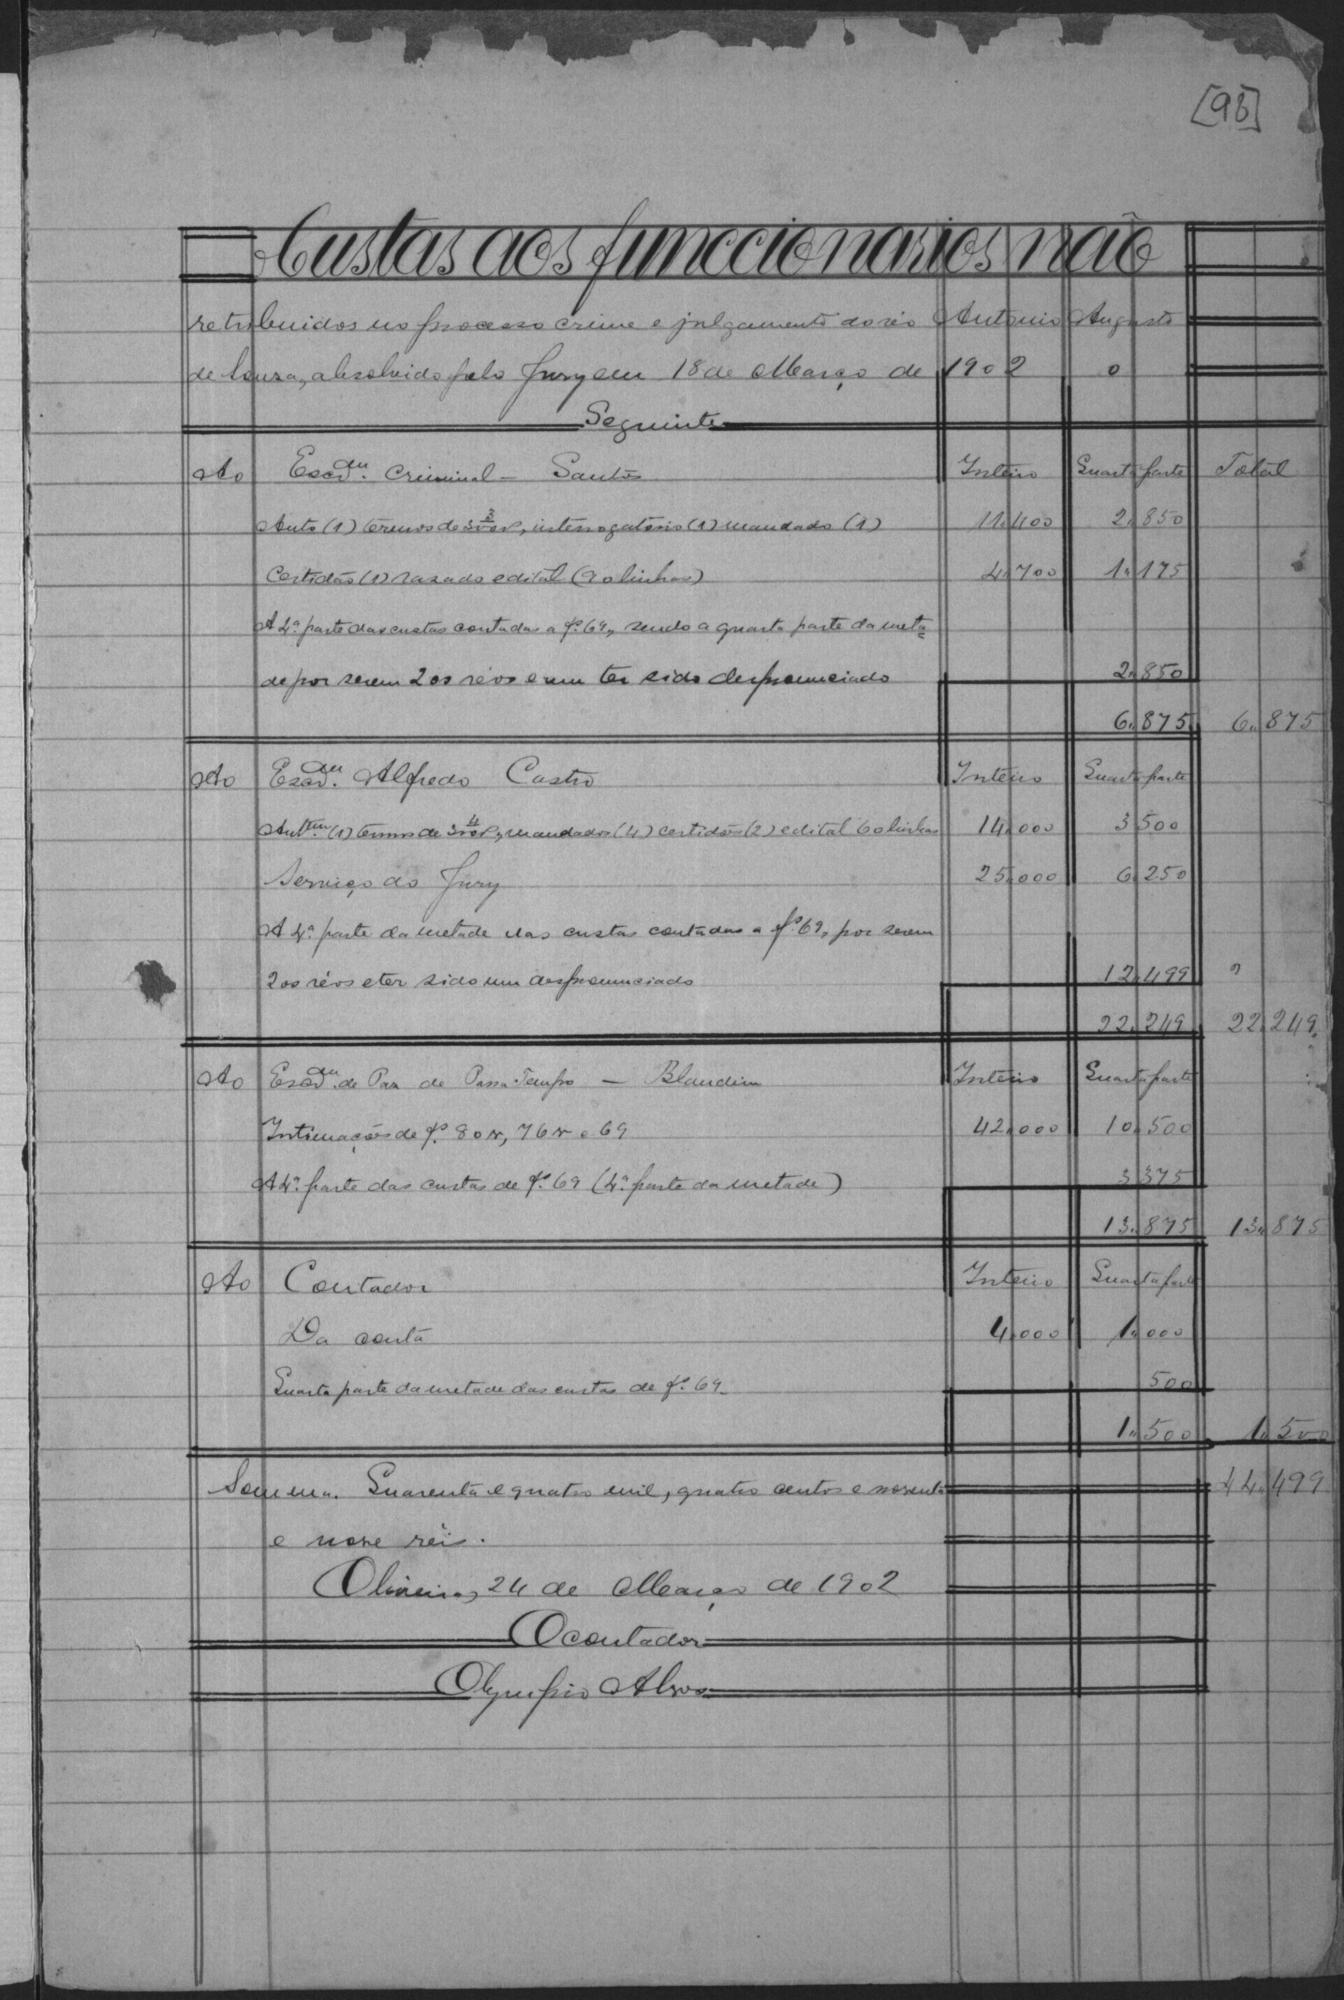 [95]
Custas aos funccionarios não
retribuidos no processo crime e julgamento do réo Antonio Augusto
de Souza, absolvido pelo Jury em 18 de Março de 1902 o
Seguinte
Ao Escr.am Criminal - Santos Inteiro Quarta parte Total
Auto (1) termos de interrogatorio (1) mandado (1) 11.400 2.850
Certidão (1) raza do edital (90 linhas) 4.700 1.175
A 4ª parte das custas contadas a f. 69, sendo a quarta parte da meta=
de por serem 2 os réos e um ter sido despronunciado 2.850
6.875 6.875
Ao Escr.am Alfredo Castro Inteiro Quarta parte
(1) termos de mandados (4) certidões (2) edital 60 linhas 14.000 3.500
Serviço do Jury 25.000 6.250
A 4ª parte da metade nas custas contadas a f. 69, por serem
2 os réos e ter sido um despronunciado 12.499
22.249 22.249
Ao Escr.am de Paz de Passa-Tempo - Blandim Inteiro Quarta parte
Intimações de f. 80v, 76v e 69 42.000 10.500
A 4ª parte das custas de f. 69 (4ª parte da metade) 3.375
13.875 13.875
Ao Contador Inteiro Quarta parte
Da conta 4.000 1.000
Quarta parte da metade das custas de f. 69 500
1.500 1.500
Somma. Quarenta e quatro mil, quatro centos e noventa 44.499
e nove réis.
Oliveira, 24 de Março de 1902
O contador
Olympio Alves